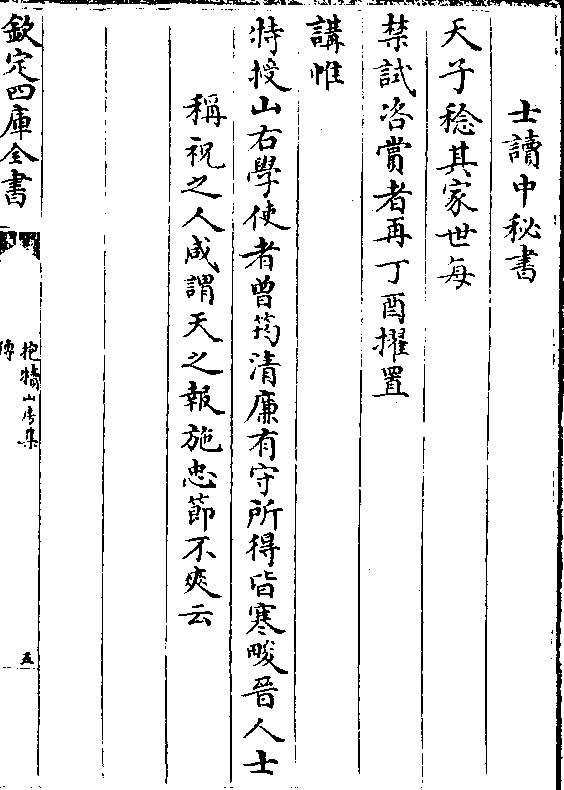 士讀中秘書
天子稔其家世每
禁試咨賞者再丁酉擢置
講帷
特授山右學使者曾筠清廉有守所得皆寒畯晉人士
稱祝之人咸謂天之報施忠節不爽云
欽定四庫全書
抱犢山房集
傳
五